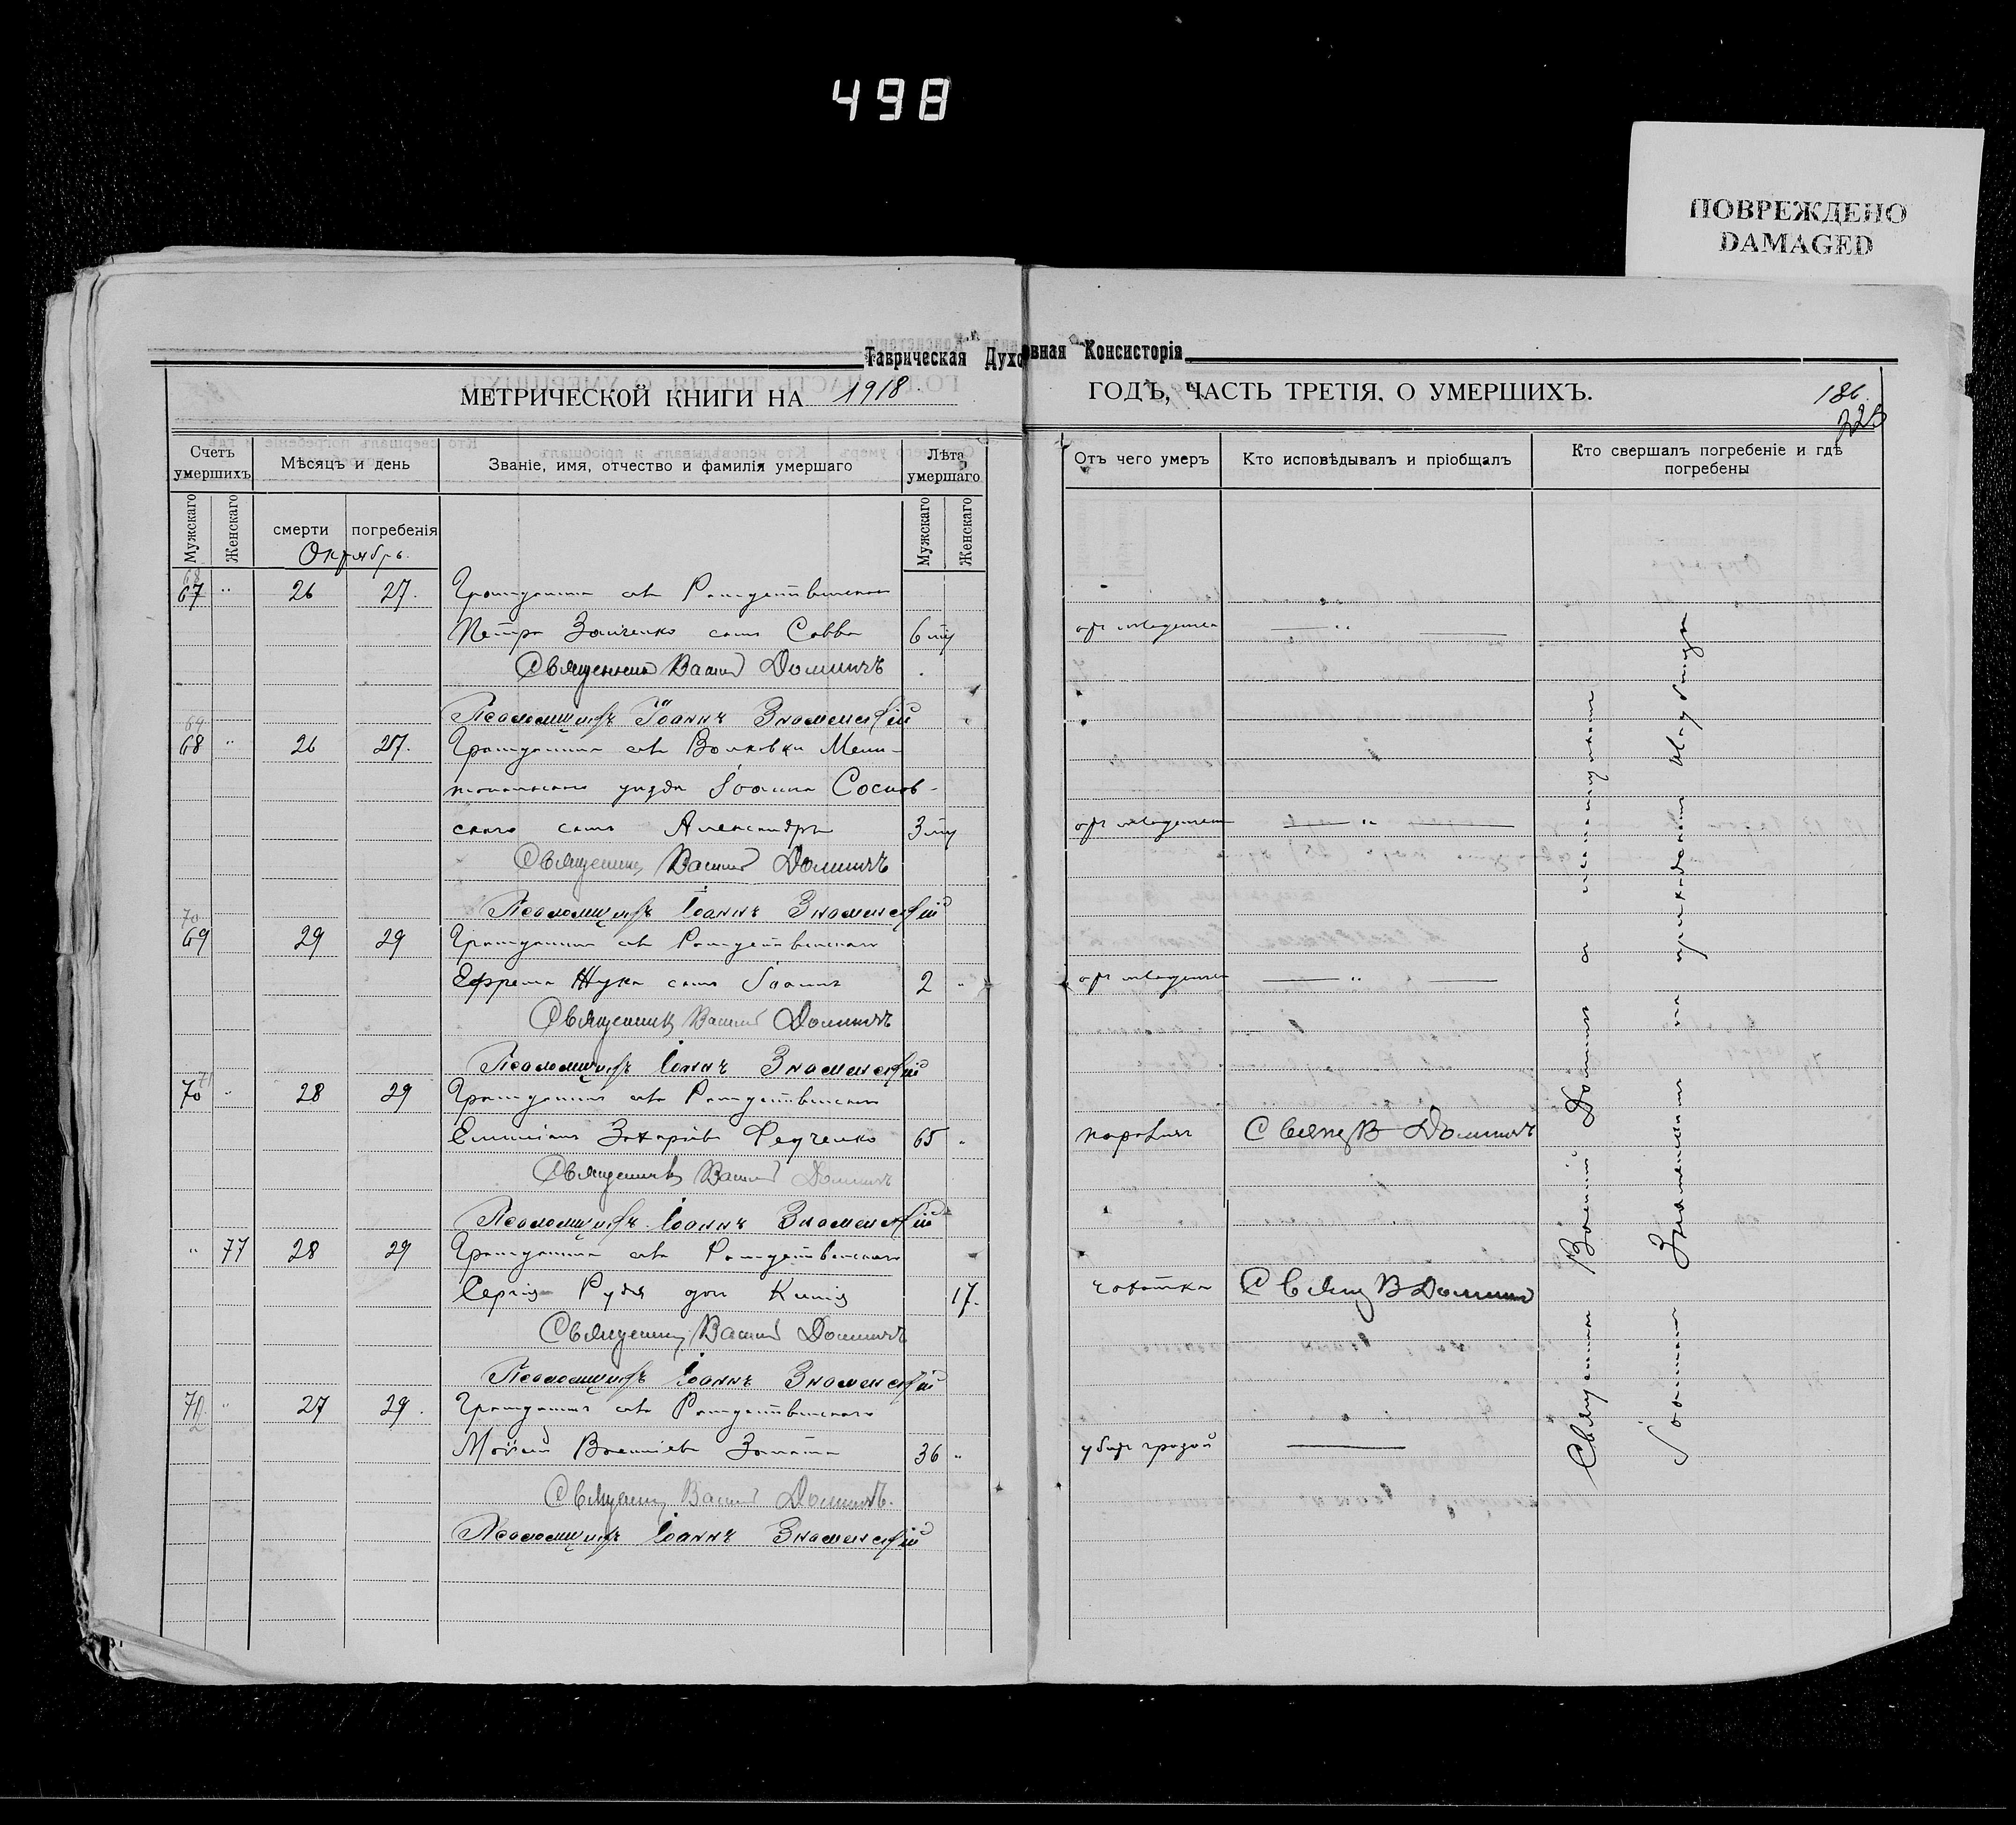 498
ПОВРЕЖДЕНО
DAMAGED
Таврическая Духовная Консисторія
МЕТРИЧЕСКОЙ КНИГИ НА 1918 ГОДЪ, ЧАСТЬ ТРЕТІЯ, О УМЕРШИХЪ.
186.
Счетъ умершихъ
Мѣсяцъ и день
Званіе, имя, отчество и фамилія умершаго
Лѣта умершаго
Отъ чего умеръ
Кто исповѣдывалъ и пріобщалъ
Кто свершалъ погребеніе и гдѣ погребены
Мужскаго
Женскаго
смерти
погребенія
Мужскаго
Женскаго
Октябрь.
67 " 26 27. Гражданина села Рождественскаго
Петра Заиченко сынъ Савва 6 отъ младенч
Священникъ Василій Доминичъ
Псаломщикъ Іоаннъ Знаменскій
68 " 26 27. Гражданина села Волковки Мели-
топольскаго уѣзда Іоанна Соснов-
скаго сынъ Александръ 3 отъ младенч
Священникъ Василій Доминичъ
Псаломщикъ Іоаннъ Знаменскій
70
69 29 29 Гражданина села Рождественскаго
Ефрема Жука сынъ Іоаннъ 2 " отъ младенч
Священникъ Василій Доминичъ
Псаломщикъ Іоаннъ Знаменскій
71
70 " 28 29 Гражданинъ села Рождественскаго
Емиліанъ Захаріевъ Федченко 65 " Свящ В Доминичъ
Священникъ Василій Доминичъ
Псаломщикъ Іоаннъ Знаменскій
" 77 28 29 Гражданина села Рождественскаго
Сергія Рудя дочь 17. чахотка Свящ В Доминичъ
Священникъ Василій Доминичъ
Псаломщикъ Іоаннъ Знаменскій
" 27 29. Гражданинъ села Рождественскаго
Моисей Василіевъ 36 " убитъ грозой
Священникъ Василій Доминичъ.
Псаломщикъ Іоаннъ Знаменскій
Священникъ Василій Доминичъ и псаломщикъ
Іоаннъ Знаменскій на приходскомъ кладбищѣ